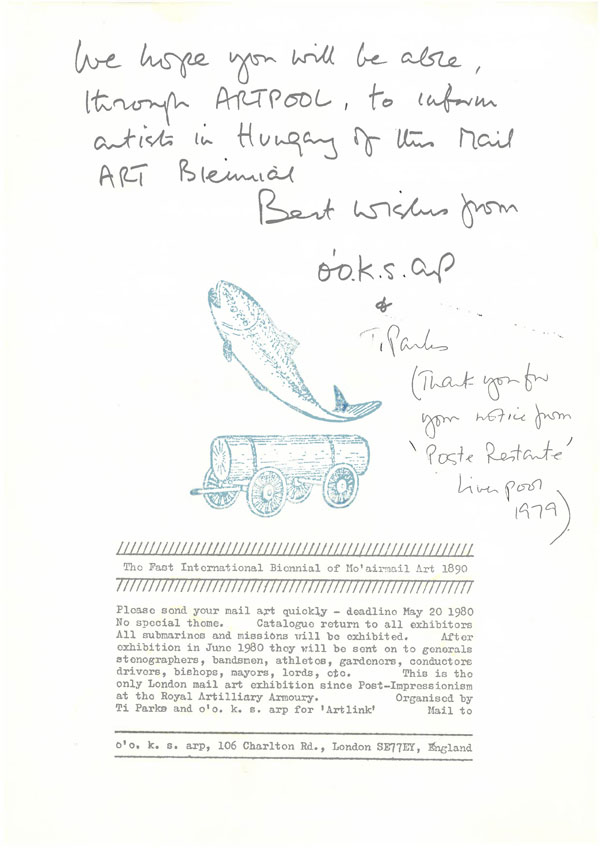 We hope you will be able,
through ARTPOOL, to inform
artists in Hungary of this Mail
ART Bieinnial
Best wishes from
o'o.k.s. arp
&
Ti Parks
(Thank you for
your notice from
'Poste Restante'
Liverpool
1979)
The Fast International Biennial of Mo'airmail Art 1890
Please send your mail art quickly - deadline May 20 1980
No special theme. Catalogue return to all exhibitors
All submarines and missions will be exhibited. After
exhibition in June 1980 they will be sent on to generals
stenographers, bandsmen, athletes, gardeners, conductors
drivers, bishops, mayors, lords, etc. This is the
only London mail art exhibition since Post-Impressionism
at the Royal Artilliary Armoury. Organised by
Ti Parks and o'o. k. s. arp for 'Artlink' Mail to
o'o. k. s. arp, 106 Charlton Rd., London SE77EY, England